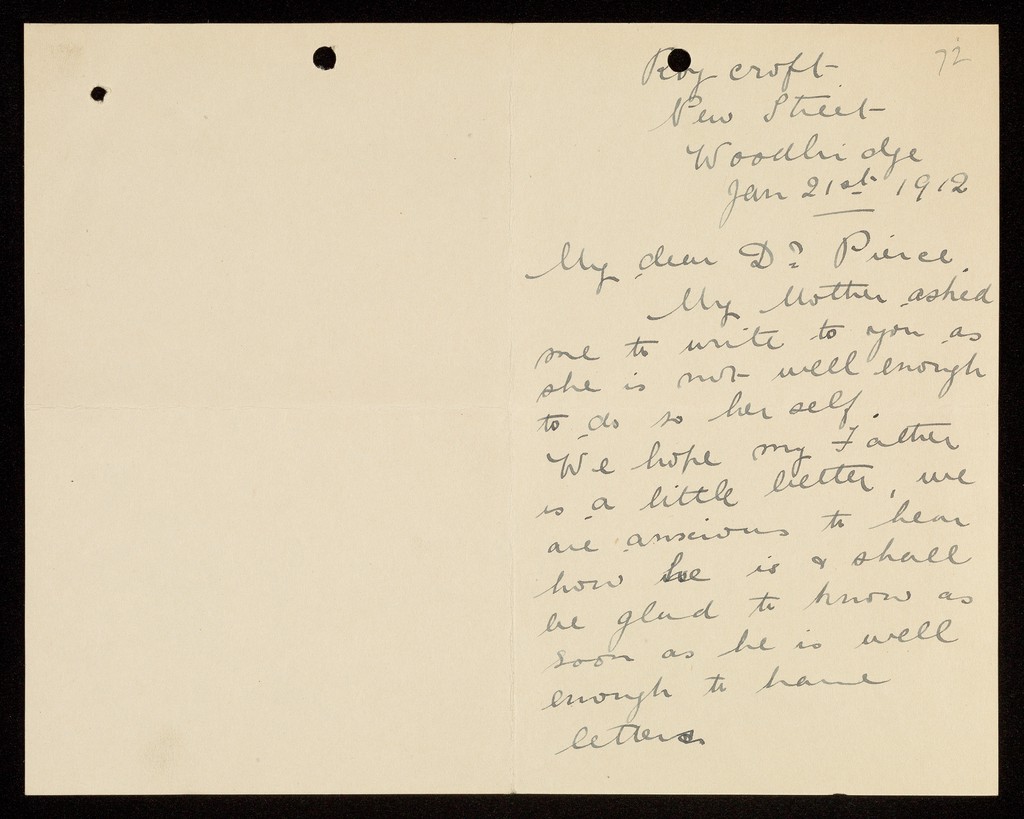 72
Roycroft
New Street
Woodbridge
Jan 21st 1912
My dear Dr Pierce,
My Mother asked
me to write to you as
she is not well enough
to do so her self.
We hope my Father
is a little better, we
are anxious to hear
how he is & shall
be glad to know as
soon as he is well
enough to have
letters